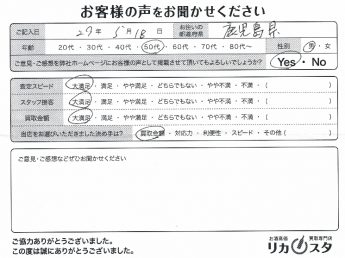 お客様の声をお聞かせください
ご記入日 27年 5月 18日 お住いの都道府県 鹿児島県
年齢 20代・30代・40代・50代・60代・70代・80代〜 性別 男・女
ご意見・ご感想を弊社ホームページにお客様の声として掲載させて頂いてもよろしいでしょうか? Yes・No
査定スピード 大満足・満足・やや満足・どちらでもない・やや不満・不満・( )
スタッフ接客 大満足・満足・やや満足・どちらでもない・やや不満・不満・( )
買取金額 大満足・満足・やや満足・どちらでもない・やや不満・不満・( )
当店をお選びいただきました決め手は? 買取金額・対応力・利便性・スピード・その他( )
ご意見・ご感想などぜひお聞かせください
ご協力ありがとうございました。
この度は誠にありがとうございました。
お酒高価買取専門店
リカスタ